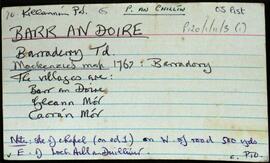 70. Kilcannin Pd. G P. AN CHILLÍN OS Past
BARR AN DOIRE P20/1/11/3 (1)
Barraderry Td.
Mackenzie's map 1767: Barradory
The villages are:
Barr an Doire
Gleann Mór
Carán Mór
Note: site of chapel (on ed 1) on W. of road 500 yds
E. of Loch Aill a' Duillliúir
c. PTO.